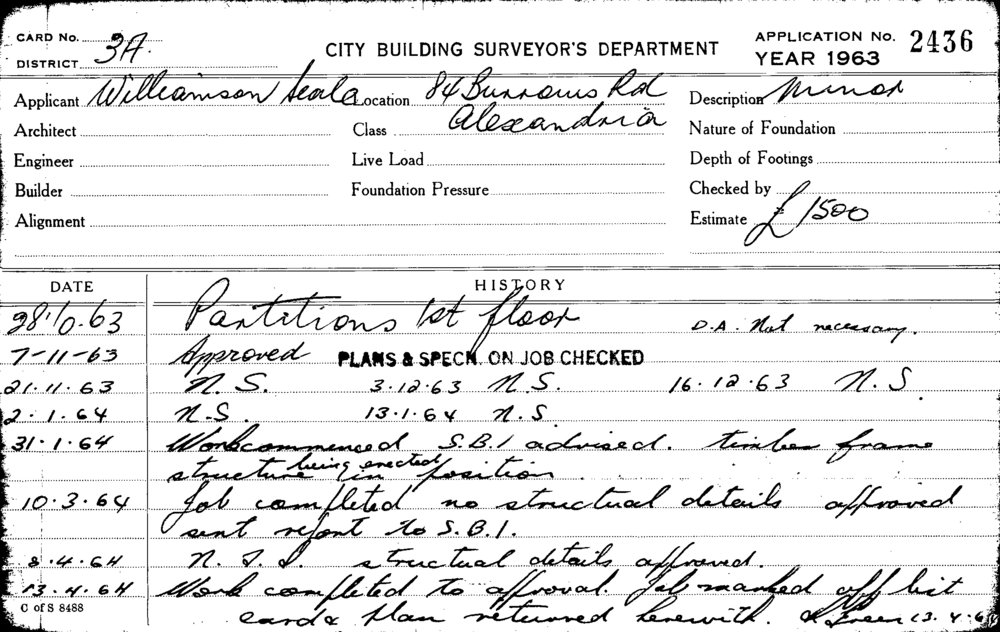 CARD No. 3A.
DISTRICT
CITY BUILDING SURVEYOR'S DEPARTMENT
APPLICATION No. 2436
YEAR 1963
Applicant Williamson Seala Location 84 Burrows Rd Description Minor
Architect Class Alexandria Nature of Foundation
Engineer Live Load Depth of Footings
Builder Foundation Pressure Checked by
Alignment Estimate £1500
DATE HISTORY
28.10.63 Partitions 1st floor D.A. Not necessary.
7-11-63 Approved PLANS & SPECN. ON JOB CHECKED
21.11.63 N.S. 3.12.63 N.S. 16.12.63 N.S
2.1.64 N.S. 13.1.64 N.S
31.1.64 Work commenced S.B.I advised. timber frame
structure being erected in position.
10.3.64 Job completed no structural details approved
sent report to S.B.I.
8.4.64 structural details approved.
13.4.64 Work completed to approval. Job marked off list
card & plan returned herewith. Green 13.4.6
C of S 8488